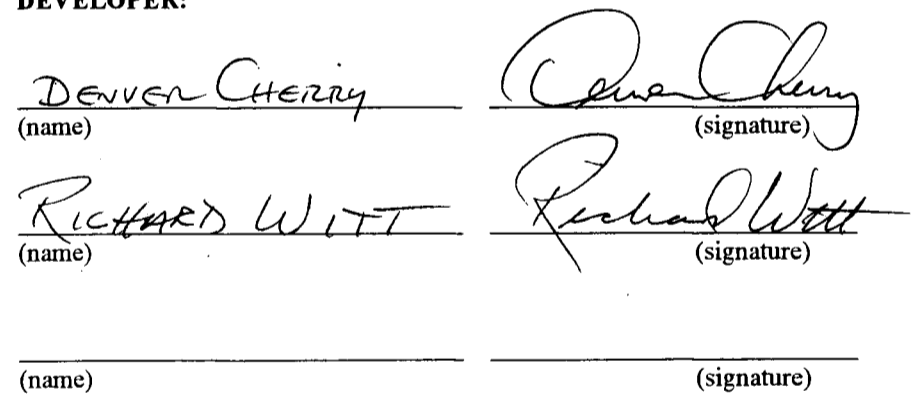 DEVELOPER:
DENVER CHERRY Denver Cherry
(name) (signature)
RICHARD WITT Richard Witt
(name) (signature)
(name) (signature)